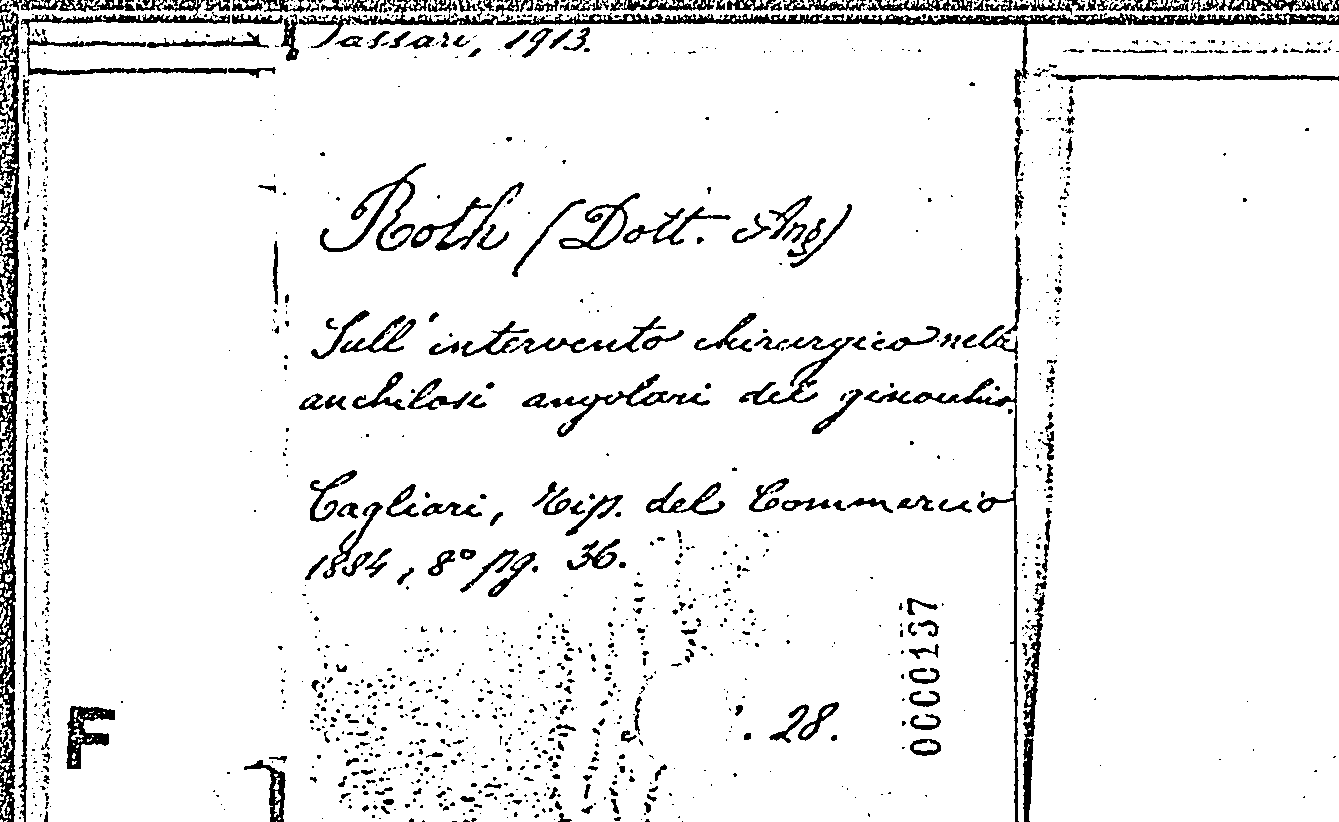 Sassari, 1913.
Roth (Dott. Ang)
Sull' intervento chirurgico nelle
anchilosi angolari del ginocchio.
Cagliari, Tip. del Commercio
1884, 8° pg. 36.
. 28.
0000137
F